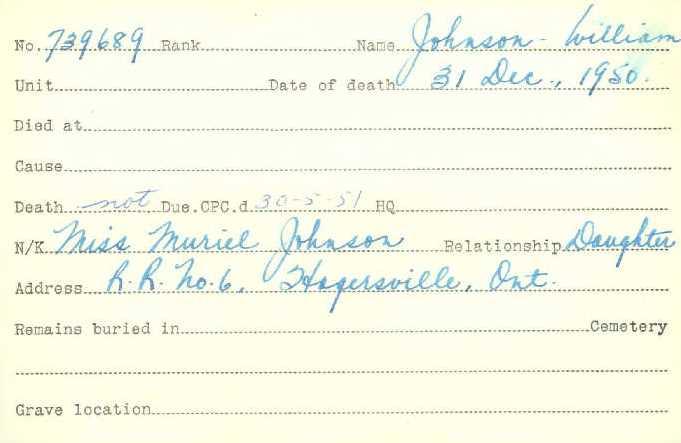 No. 739689 Rank Name Johnson - William
Unit Date of death 31 Dec., 1950.
Died at
Cause
Death not Due.CPC.d 30-5-51 HQ
N/K Miss Muriel Johnson Relationship Daughter
Address R.R. No. 6, Hagersville, Ont.
Remains buried in Cemetery
Grave location